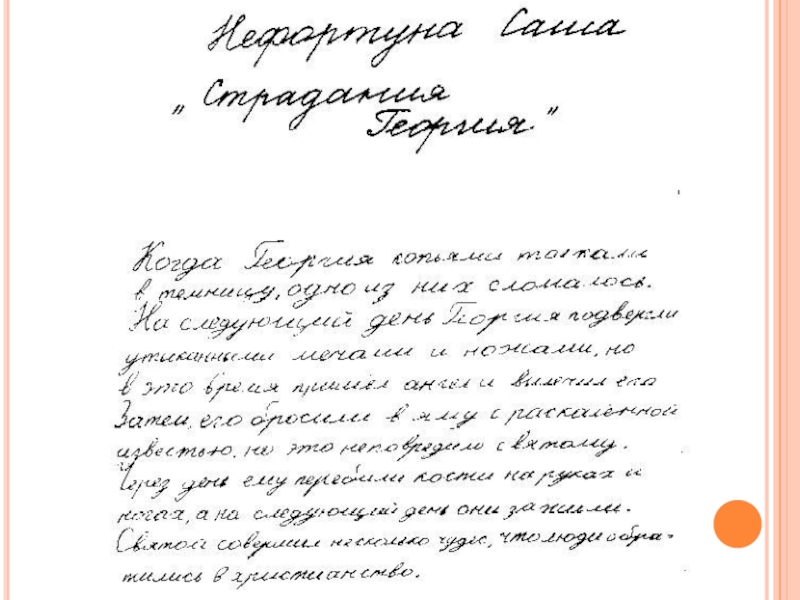 Нефортуна Саша
„Страдания
Георгия."
Когда Георгия копьями толкали
в темницу, одно из них сломалось.
На следующий день Георгия подвергли
утыканными мечами и ножами, но
в это время пришёл ангел и вылечил его
Затем, его бросили в яму с раскалённой
известью, но это неповредило святому.
Через день ему перебили кости на руках и
ногах, а на следующий день они зажили.
Святой совершил несколько чудес, что люди обра-
тились в христианство.